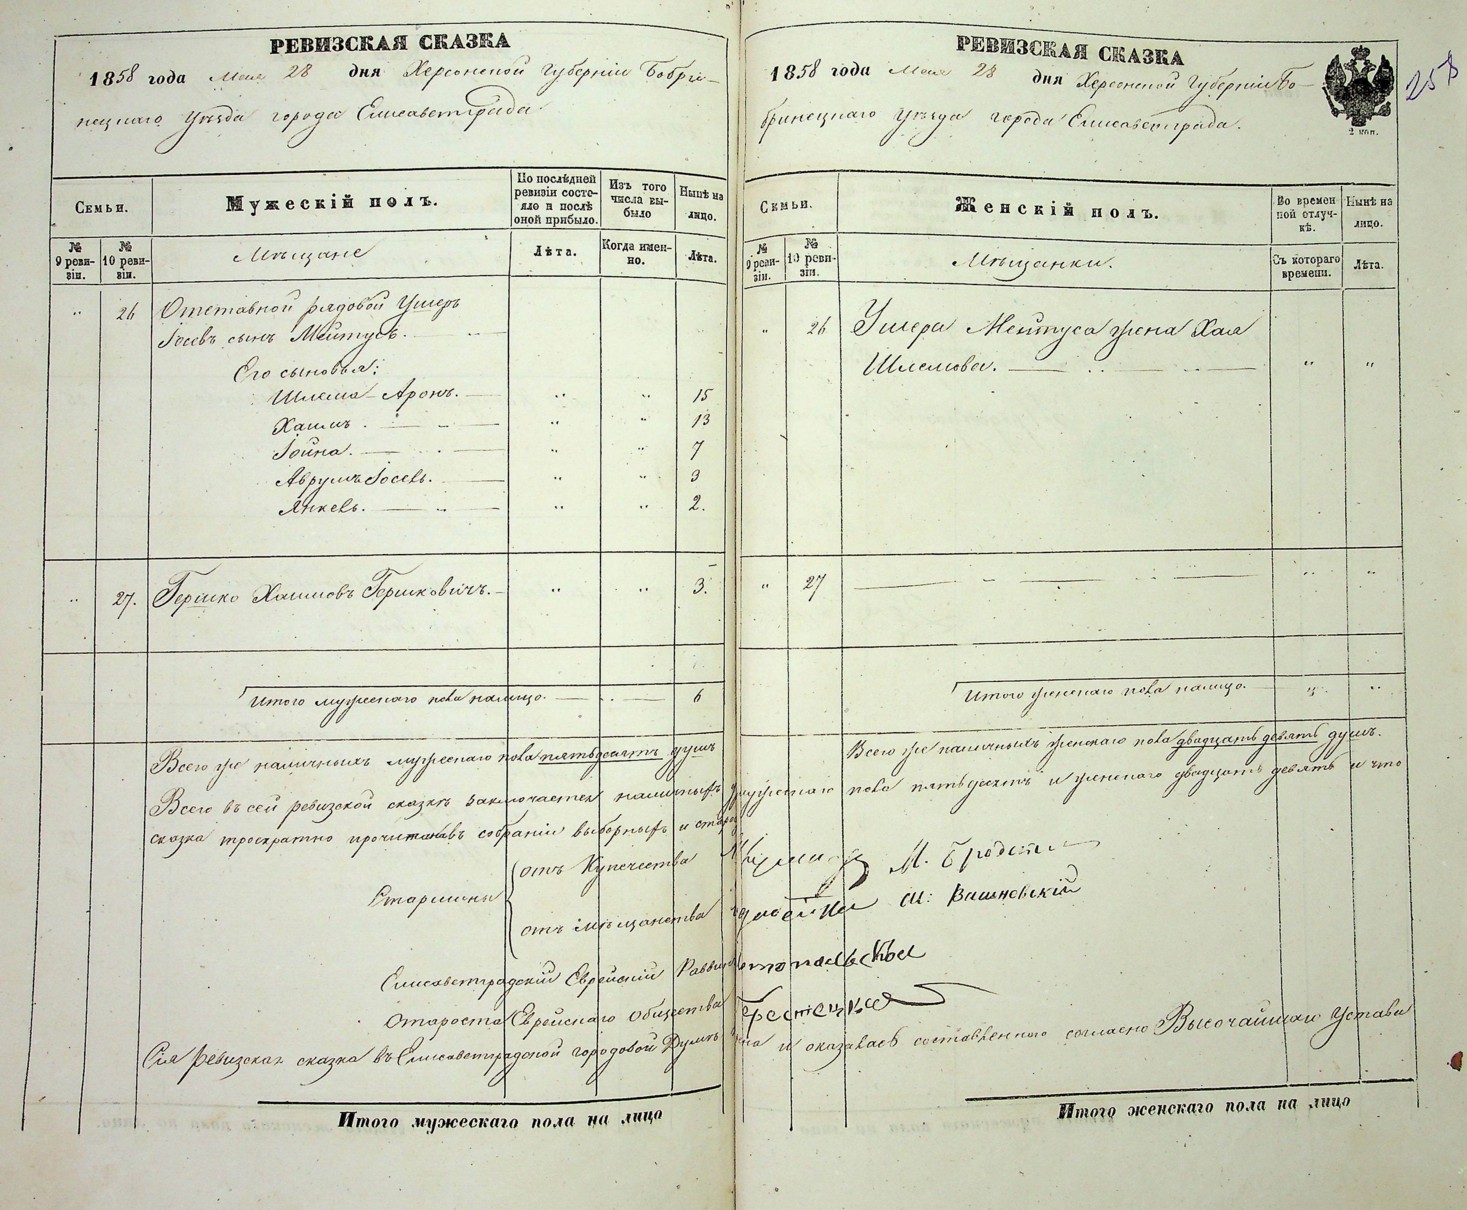 РЕВИЗСКАЯ СКАЗКА
1858 года Мая 28 дня Херсонской Губерніи Бобри-
нецкаго Уѣзда города Елисаветграда
Семьи.
Мужескій полъ.
По послѣдней ревизіи состояло и послѣ оной прибыло.
Изъ того числа выбыло
Нынѣ на лицо.
№ 9 ревизіи.
№ 10 ревизіи.
Мѣщане
Лѣта.
Когда именно.
Лѣта.
" 26 Отставной рядовой Ушеръ
Іосевъ сынъ Мейтусъ.
Его сыновья:
Шлема-Аронъ. " " 15
Хаимъ. " " 13
Іойна. " " 7
Аврумъ Іосевъ. " " 3
Янкевъ. " " 2.
" 27. Гершко Хаимовъ Гершковичъ. " " 3.
Итого мужескаго пола налицо. 6
Всего же наличныхъ мужескаго пола пятьдесятъ душъ
РЕВИЗСКАЯ СКАЗКА
1858 года Мая 28 дня Херсонской Губерніи Бо-
бринецкаго Уѣзда города Елисаветграда.
2 коп.
258
Семьи.
Женскій полъ.
Во временной отлучкѣ.
Нынѣ на лицо.
№ 9 ревизіи.
№ 10 ревизіи.
Мѣщанки.
Съ котораго времени.
Лѣта.
" 26 Ушера Мейтуса жена Хая
Шлемова. " "
" 27 " "
Итого женскаго пола налицо. " "
Всего же наличныхъ женскаго пола двадцать девять душъ.
Всего въ сей ревизской сказкѣ заключается наличныхъ мужескаго пола пятьдесятъ и женскаго двадцать девять и что
сказка троекратно прочитана въ собраніи выборныхъ и
Старшины
отъ Купечества М. Бродск
отъ мѣщанства Ш: Вишневскій
Елисаветградскій Еврейскій Раввинъ
Староста Еврейскаго Общества
Сія Ревизская сказка въ Елисаветградской городовой Думѣ и оказалась составленною согласно Высочайшаго Устава
Итого мужескаго пола на лицо
Итого женскаго пола на лицо